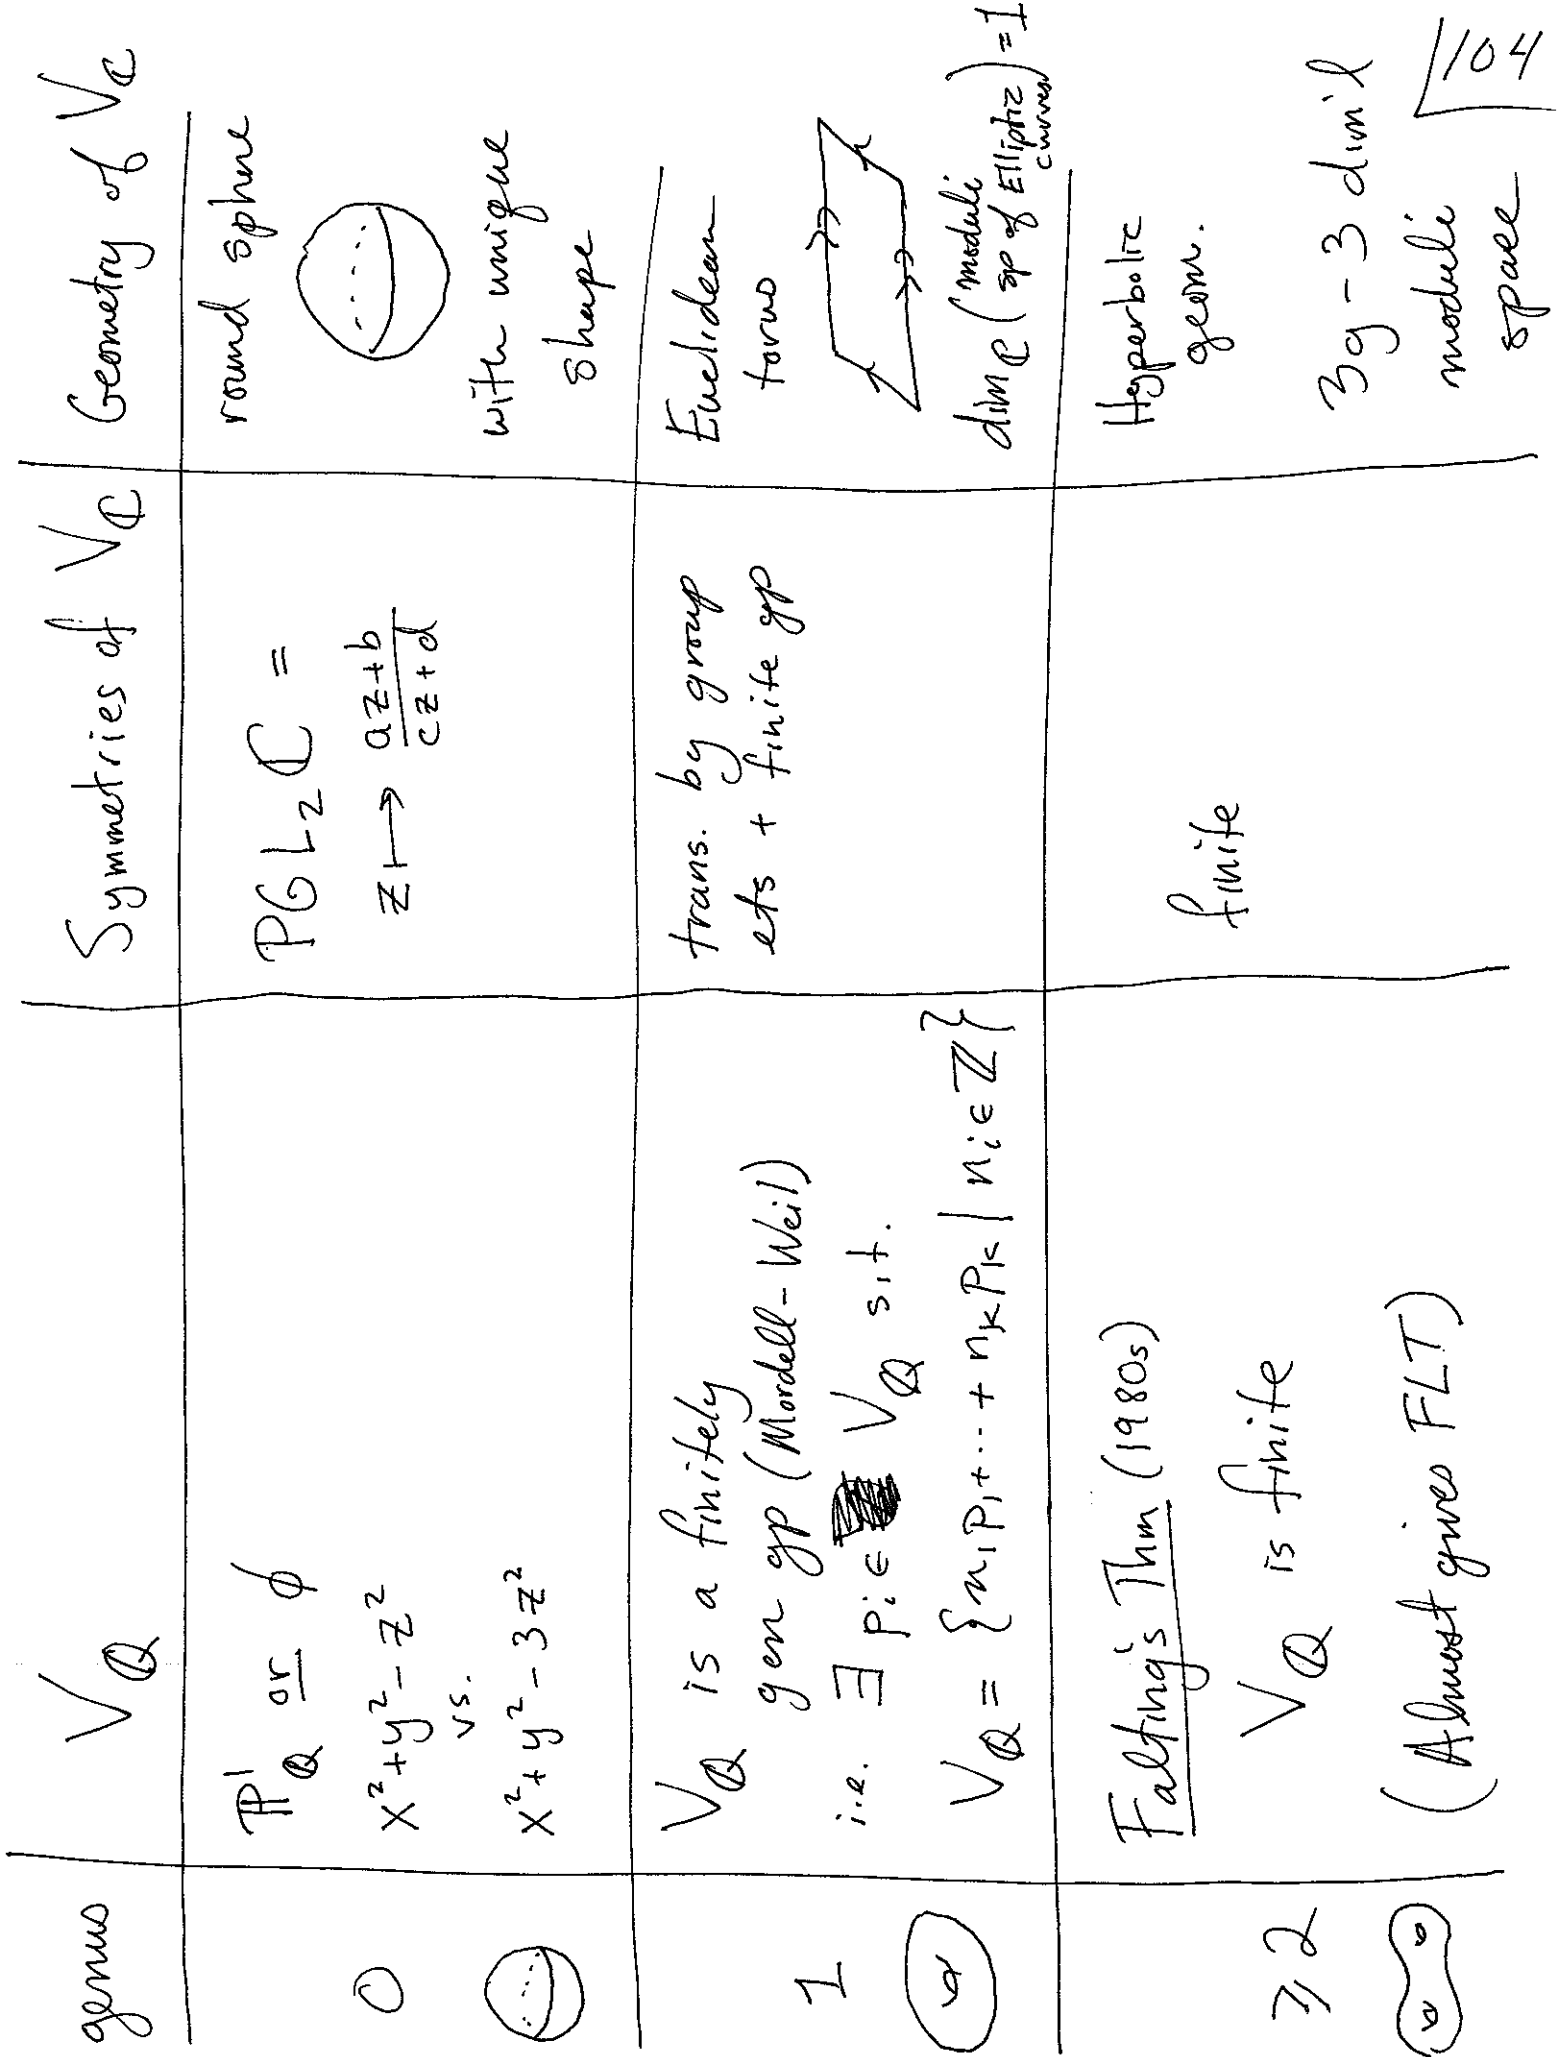 genus
V_Q
Symmetries of V_ℂ
Geometry of V_ℂ
0
ℙ¹_Q or ∅
x² + y² - z²
vs.
x² + y² - 3z²
PGL₂ ℂ =
z ↦ (az+b)/(cz+d)
round sphere
with unique
shape
1
V_Q is a finitely
gen gp (Mordell-Weil)
i.e. ∃ pᵢ ∈ V_Q s.t.
V_Q = {n₁p₁ + ··· + n_k p_k | nᵢ ∈ ℤ}
trans. by group
ets + finite gp
Euclidean
torus
dim_ℂ (moduli sp of Elliptic curves) = 1
≥ 2
Faltings Thm (1980s)
V_Q is finite
(Almost gives FLT)
finite
Hyperbolic
geom.
3g - 3 dim'l
moduli
space
104